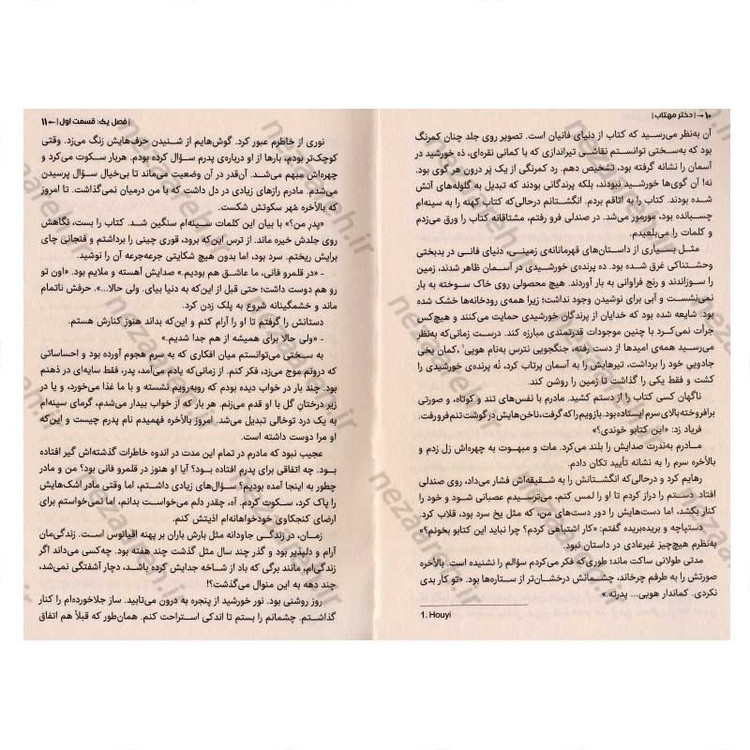 ۱۰ ← | دختر مهتاب |
آن به‌نظر می‌رسید که کتاب از دنیای فانیان است. تصویر روی جلد چنان کمرنگ
بود که به‌سختی توانستم نقاشی تیراندازی که با کمانی نقره‌ای، ده خورشید در
آسمان را نشانه گرفته بود، تشخیص دهم. رد کمرنگی از یک پر درون هر گوی بود.
نه! آن گوی‌ها خورشید نبودند، بلکه پرندگانی بودند که تبدیل به گلوله‌های آتش
شده بودند. کتاب را به اتاقم بردم. انگشتانم درحالی‌که کتاب کهنه را به سینه‌ام
چسبانده بود، مورمور می‌شد. در صندلی فرو رفتم، مشتاقانه کتاب را ورق می‌زدم
و کلمات را می‌بلعیدم.
مثل بسیاری از داستان‌های قهرمانانه‌ی زمینی، دنیای فانی در بدبختی
وحشتناکی غرق شده بود. ده پرنده‌ی خورشیدی در آسمان ظاهر شدند، زمین
را سوزاندند و رنج فراوانی به بار آوردند. هیچ محصولی روی خاک سوخته به بار
نمی‌نشست و آبی برای نوشیدن وجود نداشت؛ زیرا همه‌ی رودخانه‌ها خشک شده
بود. شایعه شده بود که خدایان از پرندگان خورشیدی حمایت می‌کنند و هیچ‌کس
جرأت نمی‌کرد با چنین موجودات قدرتمندی مبارزه کند. درست زمانی‌که به‌نظر
می‌رسید همه‌ی امیدها از دست رفته، جنگجویی نترس به‌نام هویی¹، کمان یخی
جادویی خود را برداشت، تیرهایش را به آسمان پرتاب کرد، نُه پرنده‌ی خورشیدی را
کشت و فقط یکی را گذاشت تا زمین را روشن کند.
ناگهان کسی کتاب را از دستم کشید. مادرم با نفس‌های تند و کوتاه، و صورتی
برافروخته بالای سرم ایستاده بود. بازویم را که گرفت، ناخن‌هایش در گوشت تنم فرو رفت.
فریاد زد: «این کتابو خوندی؟»
مادرم به‌ندرت صدایش را بلند می‌کرد. مات و مبهوت به چهره‌اش زل زدم و
بالأخره سرم را به نشانه تأیید تکان دادم.
رهایم کرد و درحالی‌که انگشتانش را به شقیقه‌اش فشار می‌داد، روی صندلی
افتاد. دستم را دراز کردم تا او را لمس کنم، می‌ترسیدم عصبانی شود و خود را
کنار بکشد، اما دست‌هایش را دور دست‌های من، که مثل یخ سرد بود، قلاب کرد.
دستپاچه و بریده‌بریده گفتم: «کار اشتباهی کردم؟ چرا نباید این کتابو بخونم؟»
به‌نظرم هیچ‌چیز غیرعادی در داستان نبود.
مدتی طولانی ساکت ماند؛ طوری‌که فکر می‌کردم سؤالم را نشنیده است. بالأخره
صورتش را به طرفم چرخاند، چشمانش درخشان‌تر از ستاره‌ها بود. «تو کار بدی
نکردی. کماندار هویی... پدرته.»
1. Houyi
| فصل یک: قسمت اول | ← ۱۱
نوری از خاطرم عبور کرد. گوش‌هایم از شنیدن حرف‌هایش زنگ می‌زد. وقتی
کوچک‌تر بودم، بارها از او درباره‌ی پدرم سؤال کرده بودم. هربار سکوت می‌کرد و
چهره‌اش مبهم می‌شد. آن‌قدر در آن وضعیت می‌ماند تا بی‌خیال سؤال پرسیدن
می‌شدم. مادرم رازهای زیادی در دل داشت که با من درمیان نمی‌گذاشت. تا امروز
که بالأخره مُهر سکوتش شکست.
«پدر من؟» با بیان این کلمات سینه‌ام سنگین شد. کتاب را بست، نگاهش
روی جلدش خیره ماند. از ترس این‌که برود، قوری چینی را برداشتم و فنجانی چای
برایش ریختم. سرد بود، اما بدون هیچ شکایتی جرعه‌جرعه آن را نوشید.
- «در قلمرو فانی، ما عاشق هم بودیم.» صدایش آهسته و ملایم بود. «اون تو
رو هم دوست داشت؛ حتی قبل از این‌که به دنیا بیای. ولی حالا...». حرفش ناتمام
ماند و خشمگینانه شروع به پلک زدن کرد.
دستانش را گرفتم تا او را آرام کنم و این‌که بداند هنوز کنارش هستم.
- «ولی حالا برای همیشه از هم جدا شدیم.»
به سختی می‌توانستم میان افکاری که به سرم هجوم آورده بود و احساساتی
که درونم موج می‌زد، فکر کنم. از زمانی‌که یادم می‌آمد، پدر، فقط سایه‌ای در ذهنم
بود. چند بار در خواب دیده بودم که روبه‌رویم نشسته و با ما غذا می‌خورد، و یا در
زیر درختانِ گل با او قدم می‌زنم. هر بار که از خواب بیدار می‌شدم، گرمای سینه‌ام
به یک درد توخالی تبدیل می‌شد. امروز بالأخره فهمیدم نام پدرم چیست و این‌که
او مرا دوست داشته است.
عجیب نبود که مادرم در تمام این مدت در اندوه خاطرات گذشته‌اش گیر افتاده
بود. چه اتفاقی برای پدرم افتاده بود؟ آیا او هنوز در قلمرو فانی بود؟ من و مادر
چطور به اینجا آمده بودیم؟ سؤال‌های زیادی داشتم، اما وقتی مادر اشک‌هایش
را پاک کرد، سکوت کردم. آه، چقدر دلم می‌خواست بدانم، اما نمی‌خواستم برای
ارضای کنجکاوی خودخواهانه‌ام اذیتش کنم.
زمان، در زندگی جاودانه مثل بارش باران بر پهنه اقیانوس است. زندگی‌مان
آرام و دلپذیر بود و گذر چند سال مثل گذشت چند هفته بود. چه‌کسی می‌داند اگر
زندگی‌ام، مانند برگی که باد از شاخه جدایش کرده باشد، دچار آشفتگی نمی‌شد،
چند دهه به این منوال می‌گذشت؟!
روز روشنی بود. نور خورشید از پنجره به درون می‌تابید. ساز جلاخورده‌ام را کنار
گذاشتم. چشمانم را بستم تا اندکی استراحت کنم. همان‌طور که قبلاً هم اتفاق
nezaareh.ir